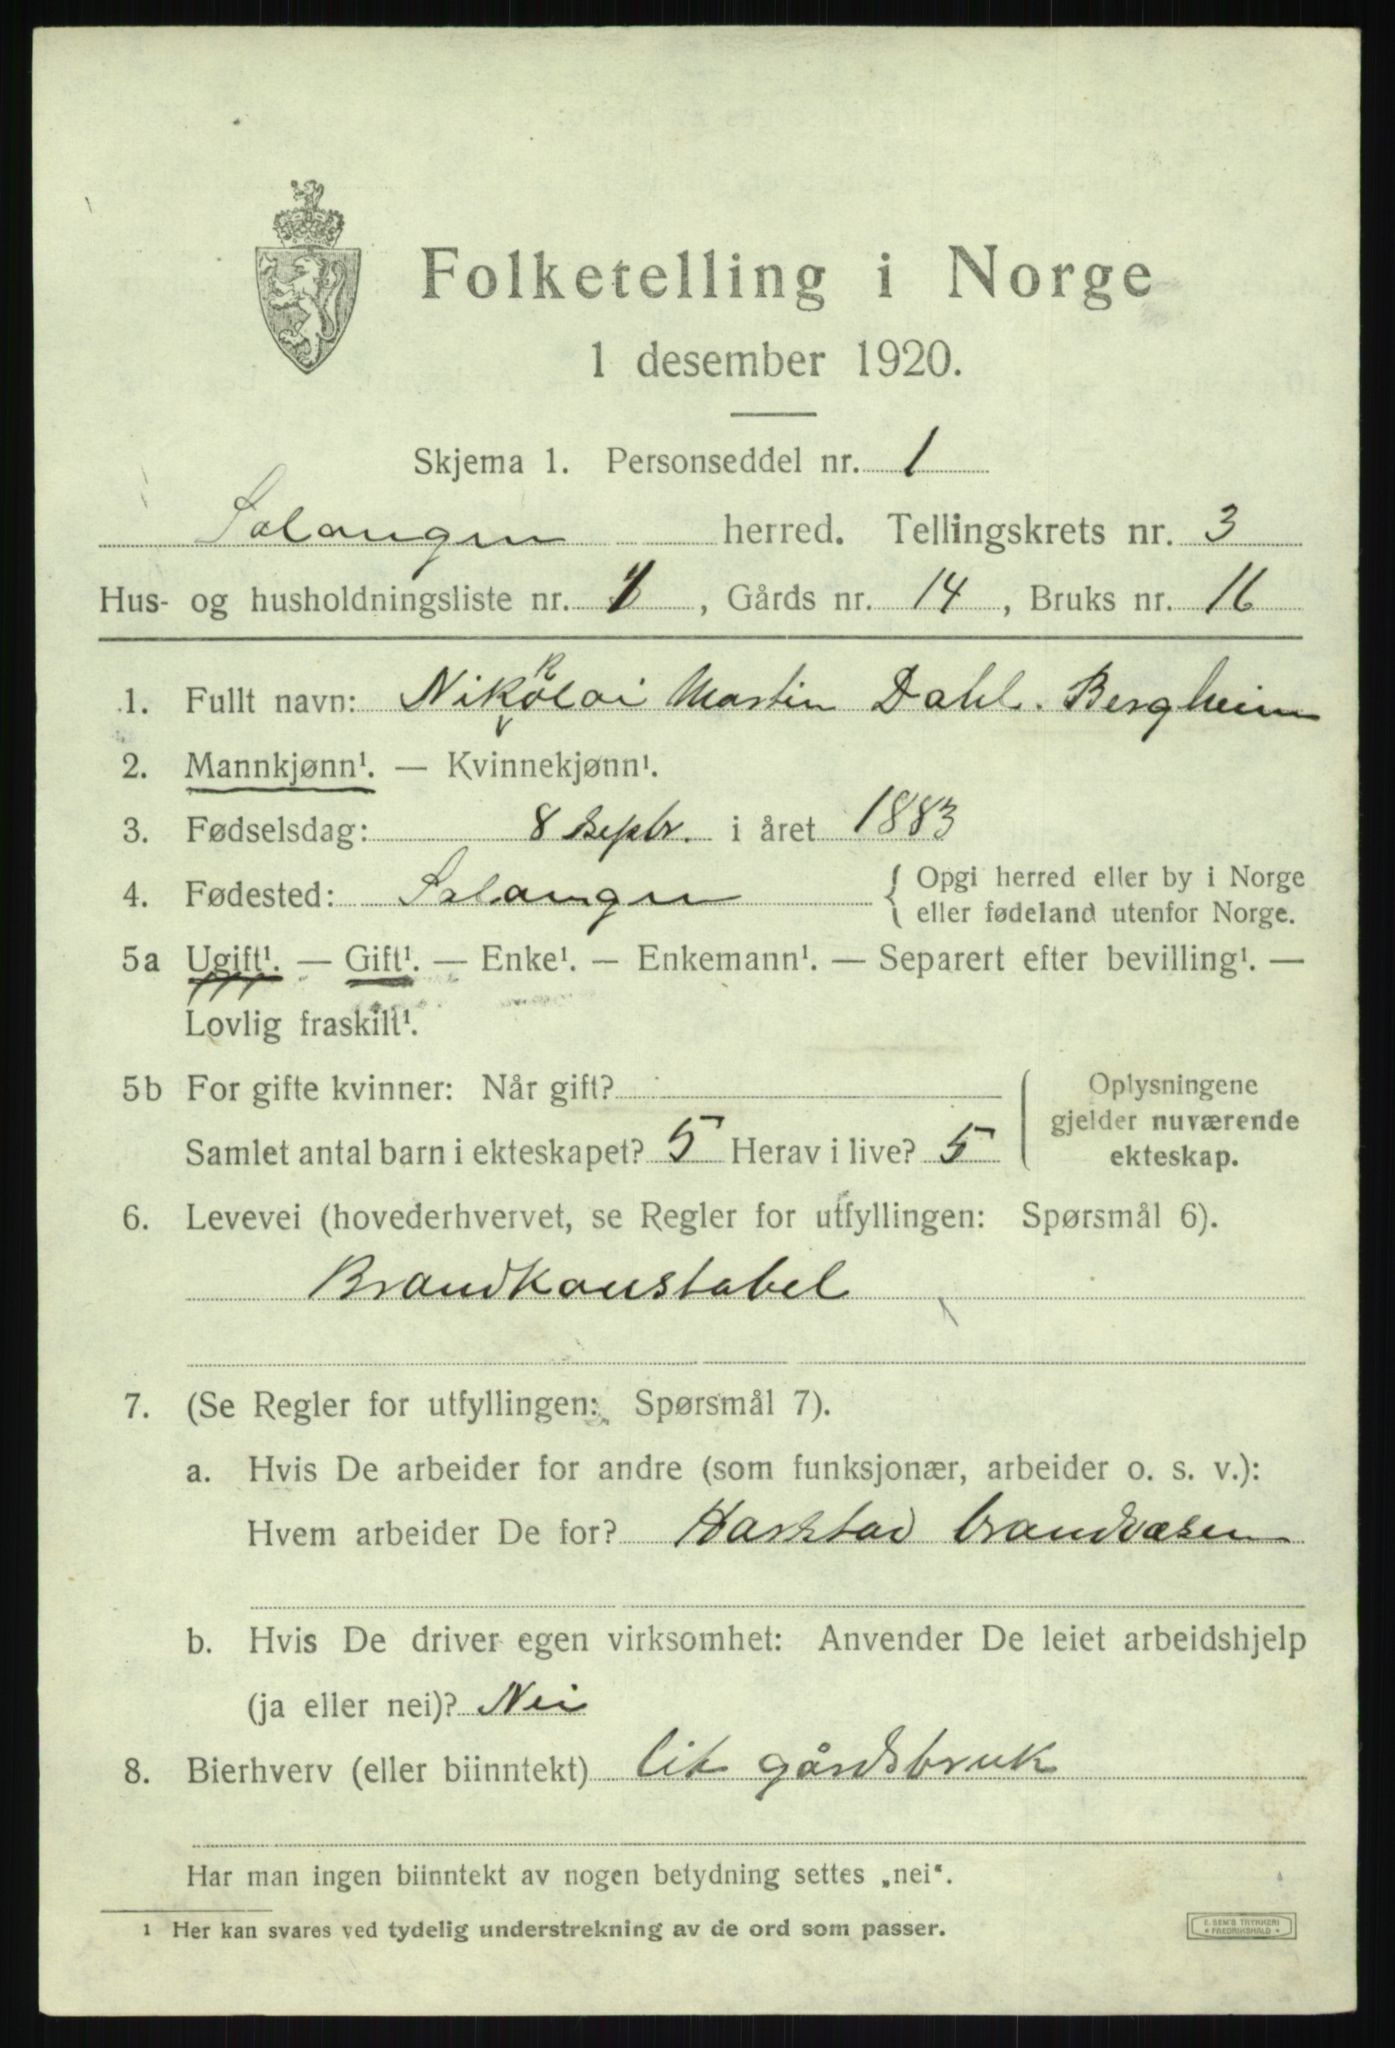 Folketelling i Norge
1 desember 1920.
Skjema 1. Personseddel nr. 1
Salangen herred. Tellingskrets nr. 3
Hus- og husholdningsliste nr. 1, Gårds nr. 14, Bruks nr. 16
1. Fullt navn: Nikolai Martin Dahl. Bergheim
2. Mannkjønn¹. — Kvinnekjønn¹.
3. Fødselsdag: 8 Septbr. i året 1883
4. Fødested: Salangen { Opgi herred eller by i Norge
eller fødeland utenfor Norge.
5a Ugift¹. — Gift¹. — Enke¹. — Enkemann¹. — Separert efter bevilling¹. —
Lovlig fraskilt¹.
5b For gifte kvinner: Når gift?
Samlet antal barn i ekteskapet? 5 Herav i live? 5
Oplysningene
gjelder nuværende
ekteskap.
6. Levevei (hovederhvervet, se Regler for utfyllingen: Spørsmål 6).
Brandkonstabel
7. (Se Regler for utfyllingen: Spørsmål 7).
a. Hvis De arbeider for andre (som funksjonær, arbeider o. s. v.):
Hvem arbeider De for? Harstad brandvæsen
b. Hvis De driver egen virksomhet: Anvender De leiet arbeidshjelp
(ja eller nei)? Nei
8. Bierhverv (eller biinntekt) lit gårdsbruk
Har man ingen biinntekt av nogen betydning settes „nei“.
1 Her kan svares ved tydelig understrekning av de ord som passer.
E. SEM'S TRYKKERI
* FREDRIKSHALD *